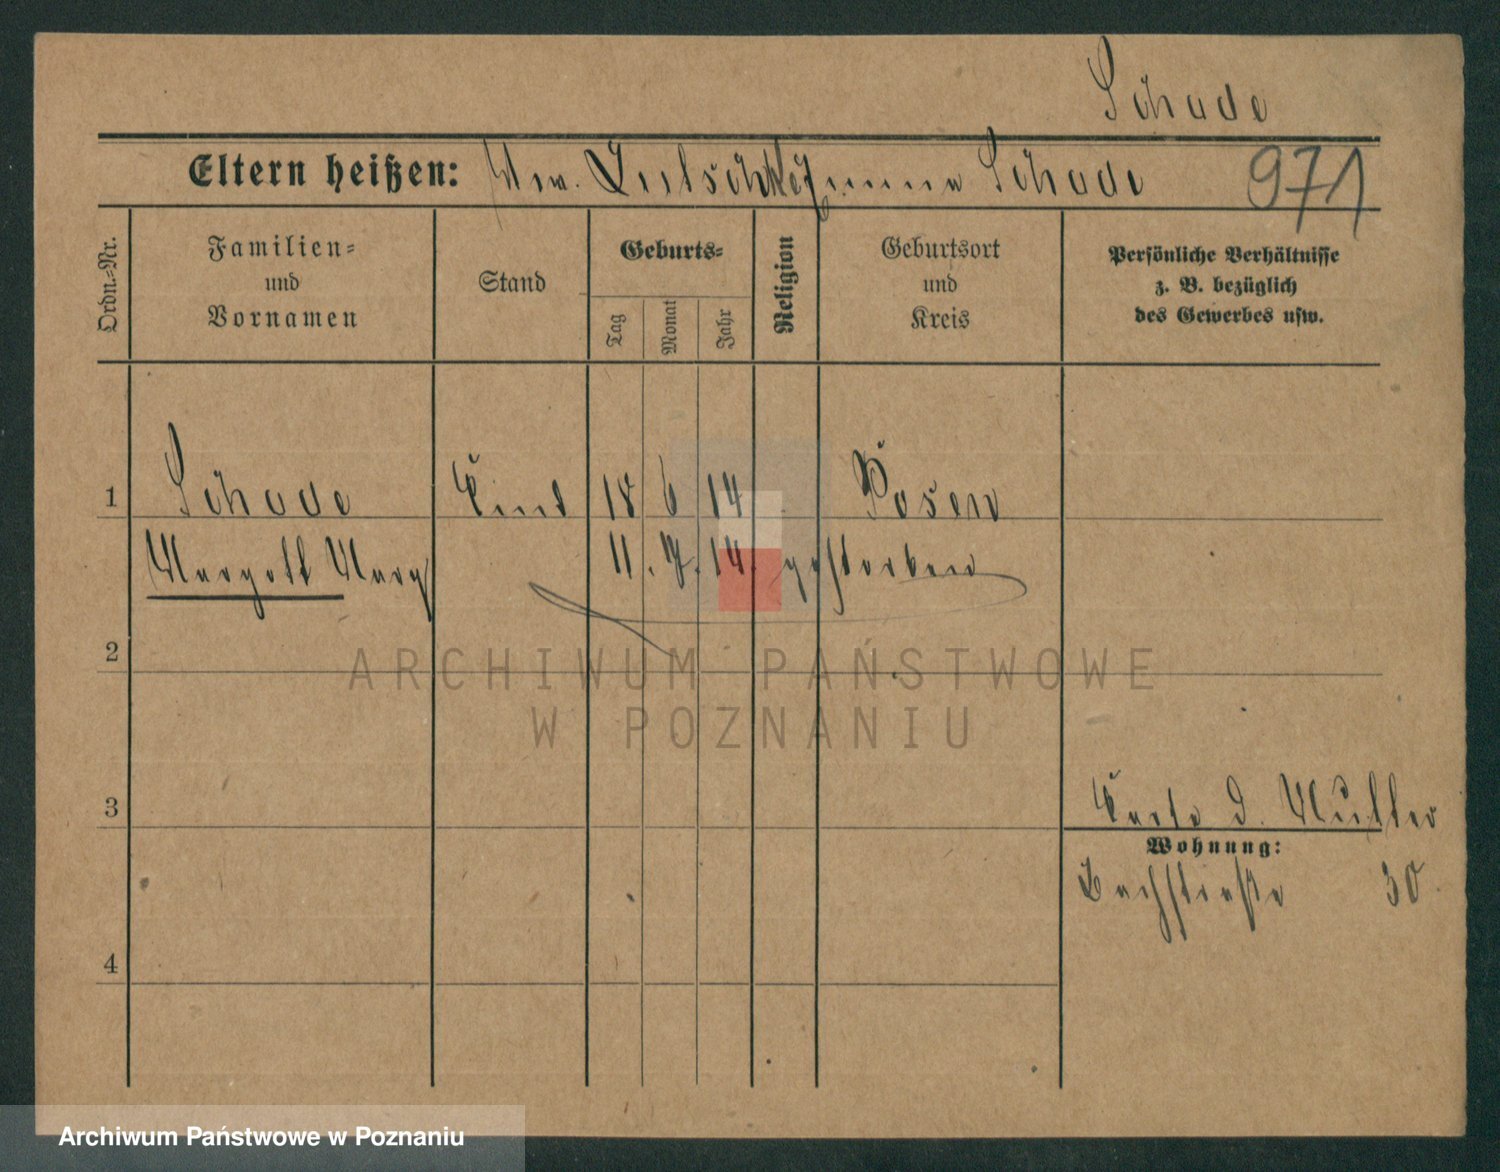 Schade
Eltern heißen: Ww. Schade 971
Ordn.-Nr.
Familien-
und
Vornamen
Stand
Geburts-
Tag
Monat
Jahr
Religion
Geburtsort
und
Kreis
Persönliche Verhältnisse
z. B. bezüglich
des Gewerbes usw.
1 Schade Kind 18 6 14 Posen
Margott Marg 11. 7. 14. gestorben
2
ARCHIWUM PAŃSTWOWE
W POZNANIU
3
Karte d. Mutter
Wohnung:
Bachstraße 30
4
Archiwum Państwowe w Poznaniu